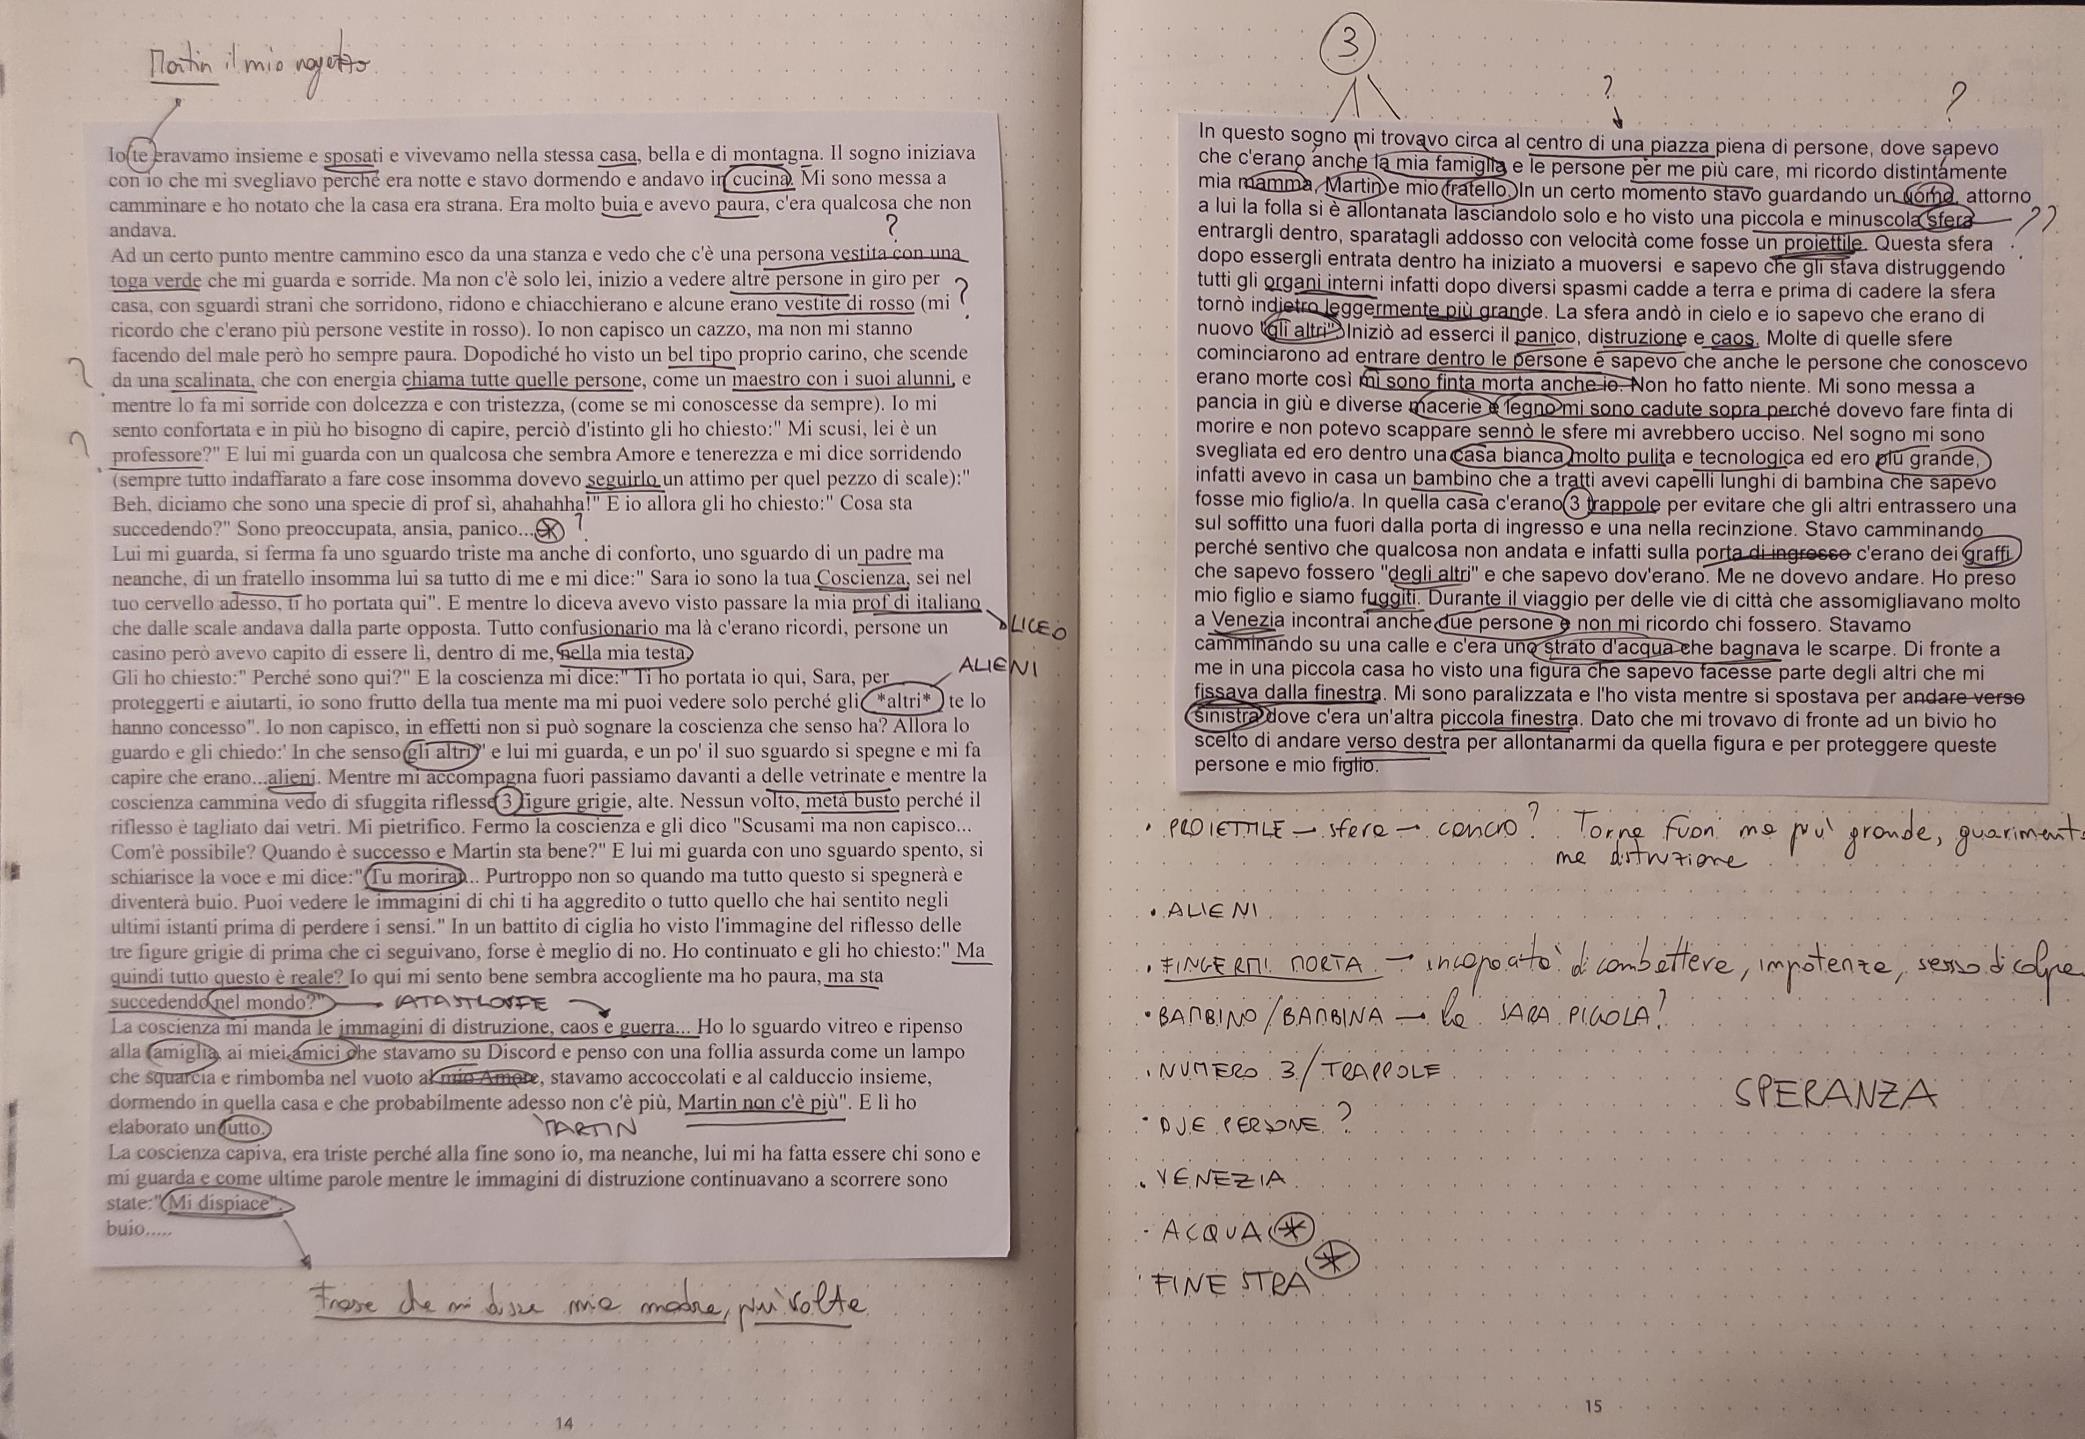 Martin il mio ragazzo
Io te eravamo insieme e sposati e vivevamo nella stessa casa, bella e di montagna. Il sogno iniziava
con io che mi svegliavo perché era notte e stavo dormendo e andavo in cucina. Mi sono messa a
camminare e ho notato che la casa era strana. Era molto buia e avevo paura, c'era qualcosa che non
andava.
?
Ad un certo punto mentre cammino esco da una stanza e vedo che c'è una persona vestita con una
toga verde che mi guarda e sorride. Ma non c'è solo lei, inizio a vedere altre persone in giro per
casa, con sguardi strani che sorridono, ridono e chiacchierano e alcune erano vestite di rosso (mi ?
ricordo che c'erano più persone vestite in rosso). Io non capisco un cazzo, ma non mi stanno
facendo del male però ho sempre paura. Dopodiché ho visto un bel tipo proprio carino, che scende
? da una scalinata, che con energia chiama tutte quelle persone, come un maestro con i suoi alunni, e
mentre lo fa mi sorride con dolcezza e con tristezza, (come se mi conoscesse da sempre). Io mi
sento confortata e in più ho bisogno di capire, perciò d'istinto gli ho chiesto:" Mi scusi, lei è un
? professore?" E lui mi guarda con un qualcosa che sembra Amore e tenerezza e mi dice sorridendo
(sempre tutto indaffarato a fare cose insomma dovevo seguirlo un attimo per quel pezzo di scale):"
Beh, diciamo che sono una specie di prof sì, ahahahha!" E io allora gli ho chiesto:" Cosa sta
succedendo?" Sono preoccupata, ansia, panico... * ?
Lui mi guarda, si ferma fa uno sguardo triste ma anche di conforto, uno sguardo di un padre ma
neanche, di un fratello insomma lui sa tutto di me e mi dice:" Sara io sono la tua Coscienza, sei nel
tuo cervello adesso, ti ho portata qui". E mentre lo diceva avevo visto passare la mia prof di italiano
LICEO
che dalle scale andava dalla parte opposta. Tutto confusionario ma là c'erano ricordi, persone un
casino però avevo capito di essere lì, dentro di me, nella mia testa.
ALIENI
Gli ho chiesto:" Perché sono qui?" E la coscienza mi dice:" Ti ho portata io qui, Sara, per
proteggerti e aiutarti, io sono frutto della tua mente ma mi puoi vedere solo perché gli *altri* te lo
hanno concesso". Io non capisco, in effetti non si può sognare la coscienza che senso ha? Allora lo
guardo e gli chiedo:' In che senso gli altri?' e lui mi guarda, e un po' il suo sguardo si spegne e mi fa
capire che erano...alieni. Mentre mi accompagna fuori passiamo davanti a delle vetrinate e mentre la
coscienza cammina vedo di sfuggita riflesse 3 figure grigie, alte. Nessun volto, metà busto perché il
riflesso è tagliato dai vetri. Mi pietrifico. Fermo la coscienza e gli dico "Scusami ma non capisco...
Com'è possibile? Quando è successo e Martin sta bene?" E lui mi guarda con uno sguardo spento, si
schiarisce la voce e mi dice:"Tu morirai... Purtroppo non so quando ma tutto questo si spegnerà e
diventerà buio. Puoi vedere le immagini di chi ti ha aggredito o tutto quello che hai sentito negli
ultimi istanti prima di perdere i sensi." In un battito di ciglia ho visto l'immagine del riflesso delle
tre figure grigie di prima che ci seguivano, forse è meglio di no. Ho continuato e gli ho chiesto:" Ma
quindi tutto questo è reale? Io qui mi sento bene sembra accogliente ma ho paura, ma sta
succedendo nel mondo?" CATASTROFE
La coscienza mi manda le immagini di distruzione, caos e guerra... Ho lo sguardo vitreo e ripenso
alla famiglia, ai miei amici che stavamo su Discord e penso con una follia assurda come un lampo
che squarcia e rimbomba nel vuoto al mio Amore, stavamo accoccolati e al calduccio insieme,
dormendo in quella casa e che probabilmente adesso non c'è più, Martin non c'è più". E lì ho
elaborato un lutto.
MARTIN
La coscienza capiva, era triste perché alla fine sono io, ma neanche, lui mi ha fatta essere chi sono e
mi guarda e come ultime parole mentre le immagini di distruzione continuavano a scorrere sono
state:"Mi dispiace".
buio.....
Frase che mi disse mia madre, più volte
14
3
? ?
In questo sogno mi trovavo circa al centro di una piazza piena di persone, dove sapevo
che c'erano anche la mia famiglia e le persone per me più care, mi ricordo distintamente
mia mamma, Martin e mio fratello. In un certo momento stavo guardando un uomo, attorno
a lui la folla si è allontanata lasciandolo solo e ho visto una piccola e minuscola sfera ??
entrargli dentro, sparatagli addosso con velocità come fosse un proiettile. Questa sfera
dopo essergli entrata dentro ha iniziato a muoversi e sapevo che gli stava distruggendo
tutti gli organi interni infatti dopo diversi spasmi cadde a terra e prima di cadere la sfera
tornò indietro leggermente più grande. La sfera andò in cielo e io sapevo che erano di
nuovo "gli altri". Iniziò ad esserci il panico, distruzione e caos. Molte di quelle sfere
cominciarono ad entrare dentro le persone e sapevo che anche le persone che conoscevo
erano morte così mi sono finta morta anche io. Non ho fatto niente. Mi sono messa a
pancia in giù e diverse macerie e legno mi sono cadute sopra perché dovevo fare finta di
morire e non potevo scappare sennò le sfere mi avrebbero ucciso. Nel sogno mi sono
svegliata ed ero dentro una casa bianca molto pulita e tecnologica ed ero più grande,
infatti avevo in casa un bambino che a tratti avevi capelli lunghi di bambina che sapevo
fosse mio figlio/a. In quella casa c'erano 3 trappole per evitare che gli altri entrassero una
sul soffitto una fuori dalla porta di ingresso e una nella recinzione. Stavo camminando
perché sentivo che qualcosa non andata e infatti sulla porta di ingresso c'erano dei graffi
che sapevo fossero "degli altri" e che sapevo dov'erano. Me ne dovevo andare. Ho preso
mio figlio e siamo fuggiti. Durante il viaggio per delle vie di città che assomigliavano molto
a Venezia incontrai anche due persone e non mi ricordo chi fossero. Stavamo
camminando su una calle e c'era uno strato d'acqua che bagnava le scarpe. Di fronte a
me in una piccola casa ho visto una figura che sapevo facesse parte degli altri che mi
fissava dalla finestra. Mi sono paralizzata e l'ho vista mentre si spostava per andare verso
sinistra dove c'era un'altra piccola finestra. Dato che mi trovavo di fronte ad un bivio ho
scelto di andare verso destra per allontanarmi da quella figura e per proteggere queste
persone e mio figlio.
· PROIETTILE → sfera → cancro? Torna fuori ma più grande, guarimento
ma distruzione
· ALIENI
· FINGERMI MORTA → incapacità di combattere, impotenza, senso di colpa
· BAMBINO/BAMBINA → la SARA PICCOLA?
· NUMERO 3/TRAPPOLE
SPERANZA
· DUE PERSONE?
· VENEZIA
· ACQUA *
· FINESTRA *
15